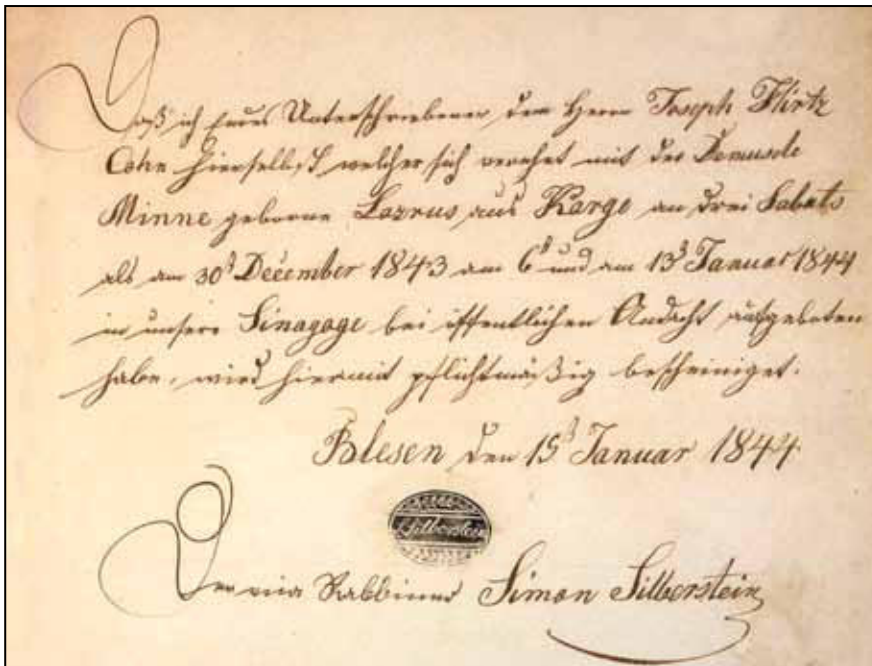 Daß ich Endes Unterschriebener dem Herrn Joseph Hirtz
Cohn hierselbst welcher sich verehet mit der Demuselle
Minne geborne Lazrus aus Karge an drei Sabats
als am 30t December 1843 am 6t und am 13t Januar 1844
in unsere Sinagoge bei öffentlichen Andacht aufgeboten
habe, wird hiermit pflichtmäßig bescheiniget.
Blesen den 15t Januar 1844
Silberstein
Der Rabbiner Simon Silberstein